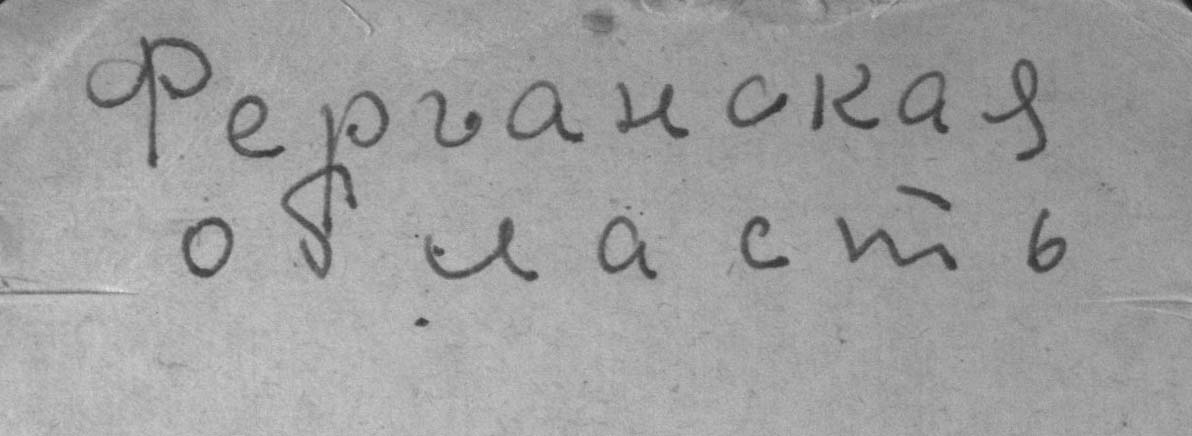 Ферганская
область